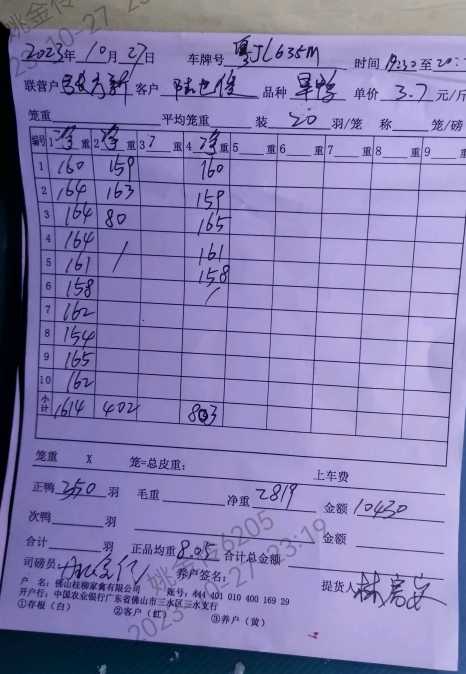 2023年10月27日 车牌号粤JL635M 时间 至
联营户 客户 品种 单价3.7元/斤
笼重 平均笼重 装20羽/笼 称 笼/磅
编号 1净重 2净重 3 重 4净重 5 重 6 重 7 重 8 重 9 重
1 160 159 160
2 164 163 159
3 164 80 165
4 164 161
5 161 / 158
6 158 /
7 162
8 154
9 165
10 162
小计 1614 402 803
笼重 X 笼=总皮重: 上车费
正鸭350羽 毛重 净重2819 金额10430
次鸭 羽 金额
合计 羽 正品均重8.05 合计总金额
司磅员: 养户签名: 提货人
户 名:佛山桂柳家禽有限公司 账号:444 401 010 400 169 29
开户行:中国农业银行广东省佛山市三水区三水支行
①存根(白) ②客户(红) ③养户(黄)
姚金传6205
2023-10-27 23:19